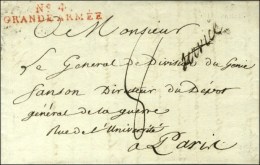 No. 4.
GRANDE-ARMÉE
A Monsieur
service
Le General de Division du Genie
Sanson Directeur du Depot
général de la guerre
Rue de l'Université
a Paris